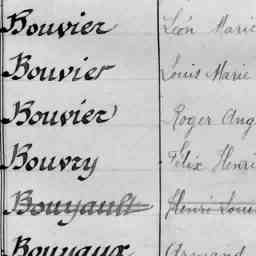 Bouvier Léon Marie
Bouvier Louis Marie
Bouvier Roger Ang
Bouvry Félix Henri
Bouyault Henri Louis
Bouyaux Armand